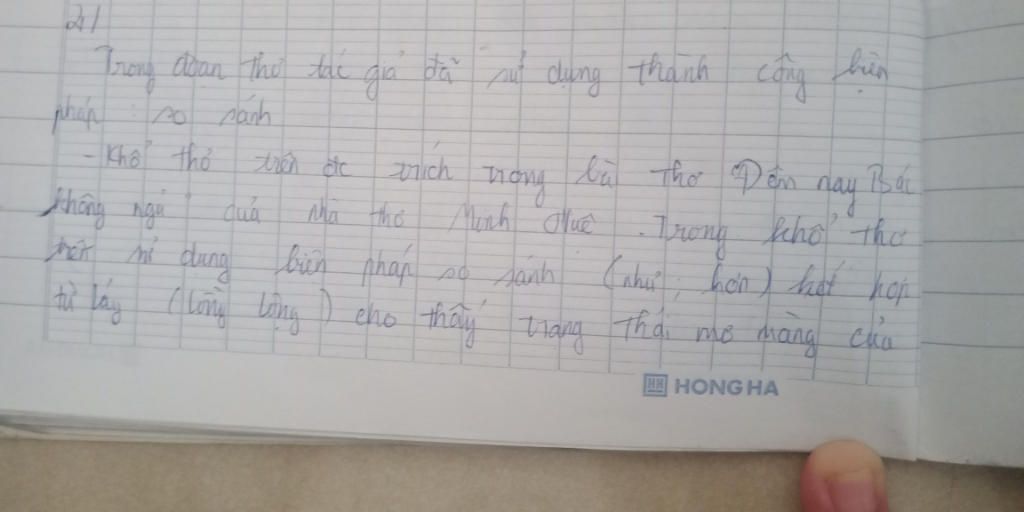 2/
Trong đoạn thơ tác giả đã sử dụng thành công biện
pháp : so sánh
- Khổ thơ trên đc trích trong bài thơ Đêm nay Bác
không ngủ của nhà thơ Minh Huệ. Trong khổ thơ
trên sử dụng biện pháp so sánh (như; hơn) kết hợp
từ láy (lồng lộng) cho thấy trạng thái mơ màng của
HONG HA